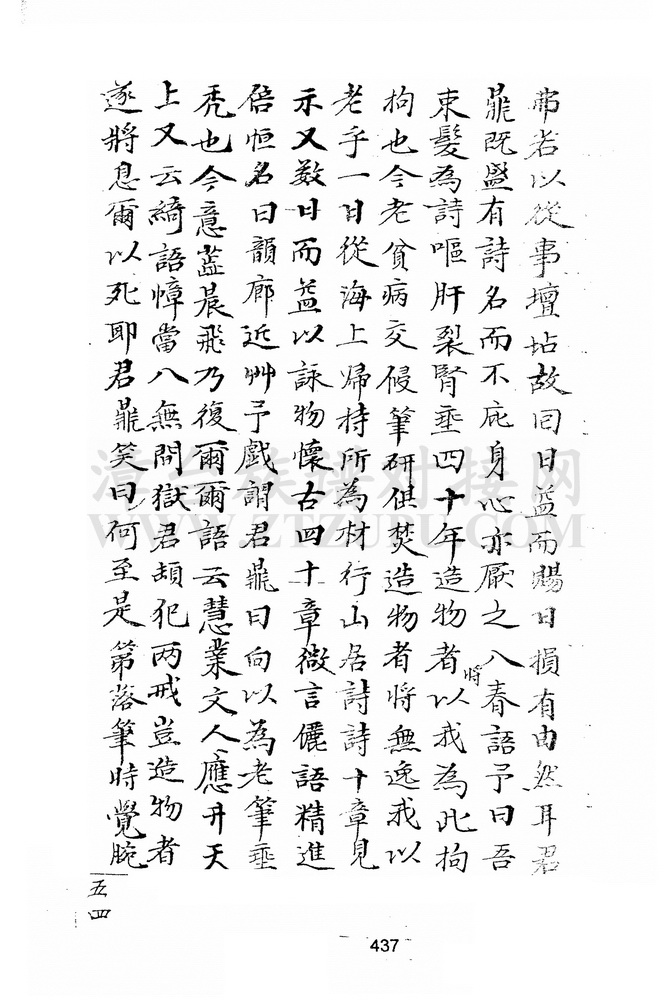 弗若以從事壇坫故囙日益而賜日損有由然耳君
鼐既盛有詩名而不庇身心亦厭之入春語予曰吾
束髮為詩嘔肝裂腎垂四十年造物者將以我為此拘
拘也今老貧病交侵筆研俱焚造物者將無逸我以
老乎一日從海上歸持所為村行山居詩詩十章見
示又数日而益以詠物懷古四十章微言儷語精進
倍恒名曰韻廊近艸予戲謂君鼐曰向以為老筆垂
禿也今意蕋晨飛乃復爾爾語云慧業文人應升天
上又云綺語障當入無間獄君頡犯两戒豈造物者
遂將息爾以死耶君鼐笑曰何至是第落筆時覺腕
五四
437
漳台族譜对接网
WWW.ZTZUPU.COM